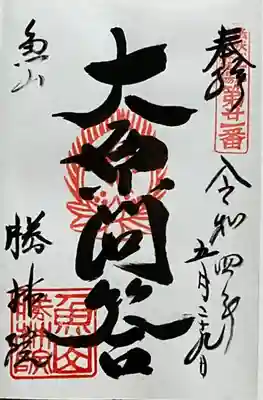 奉拝
第廿一番
令和四年
五月二十九日
大原問答
魚山
勝林院
魚山